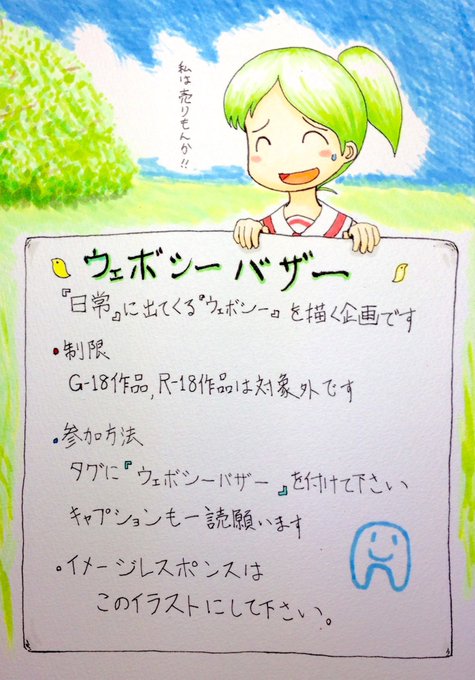 私は売りもんか!!
ウェボシーバザー
『日常』に出てくる『ウェボシー』を描く企画です
・制限
G-18作品,R-18作品は対象外です
・参加方法
タグに『ウェボシーバザー』を付けて下さい
キャプションも一読願います
・イメージレスポンスは
このイラストにして下さい。